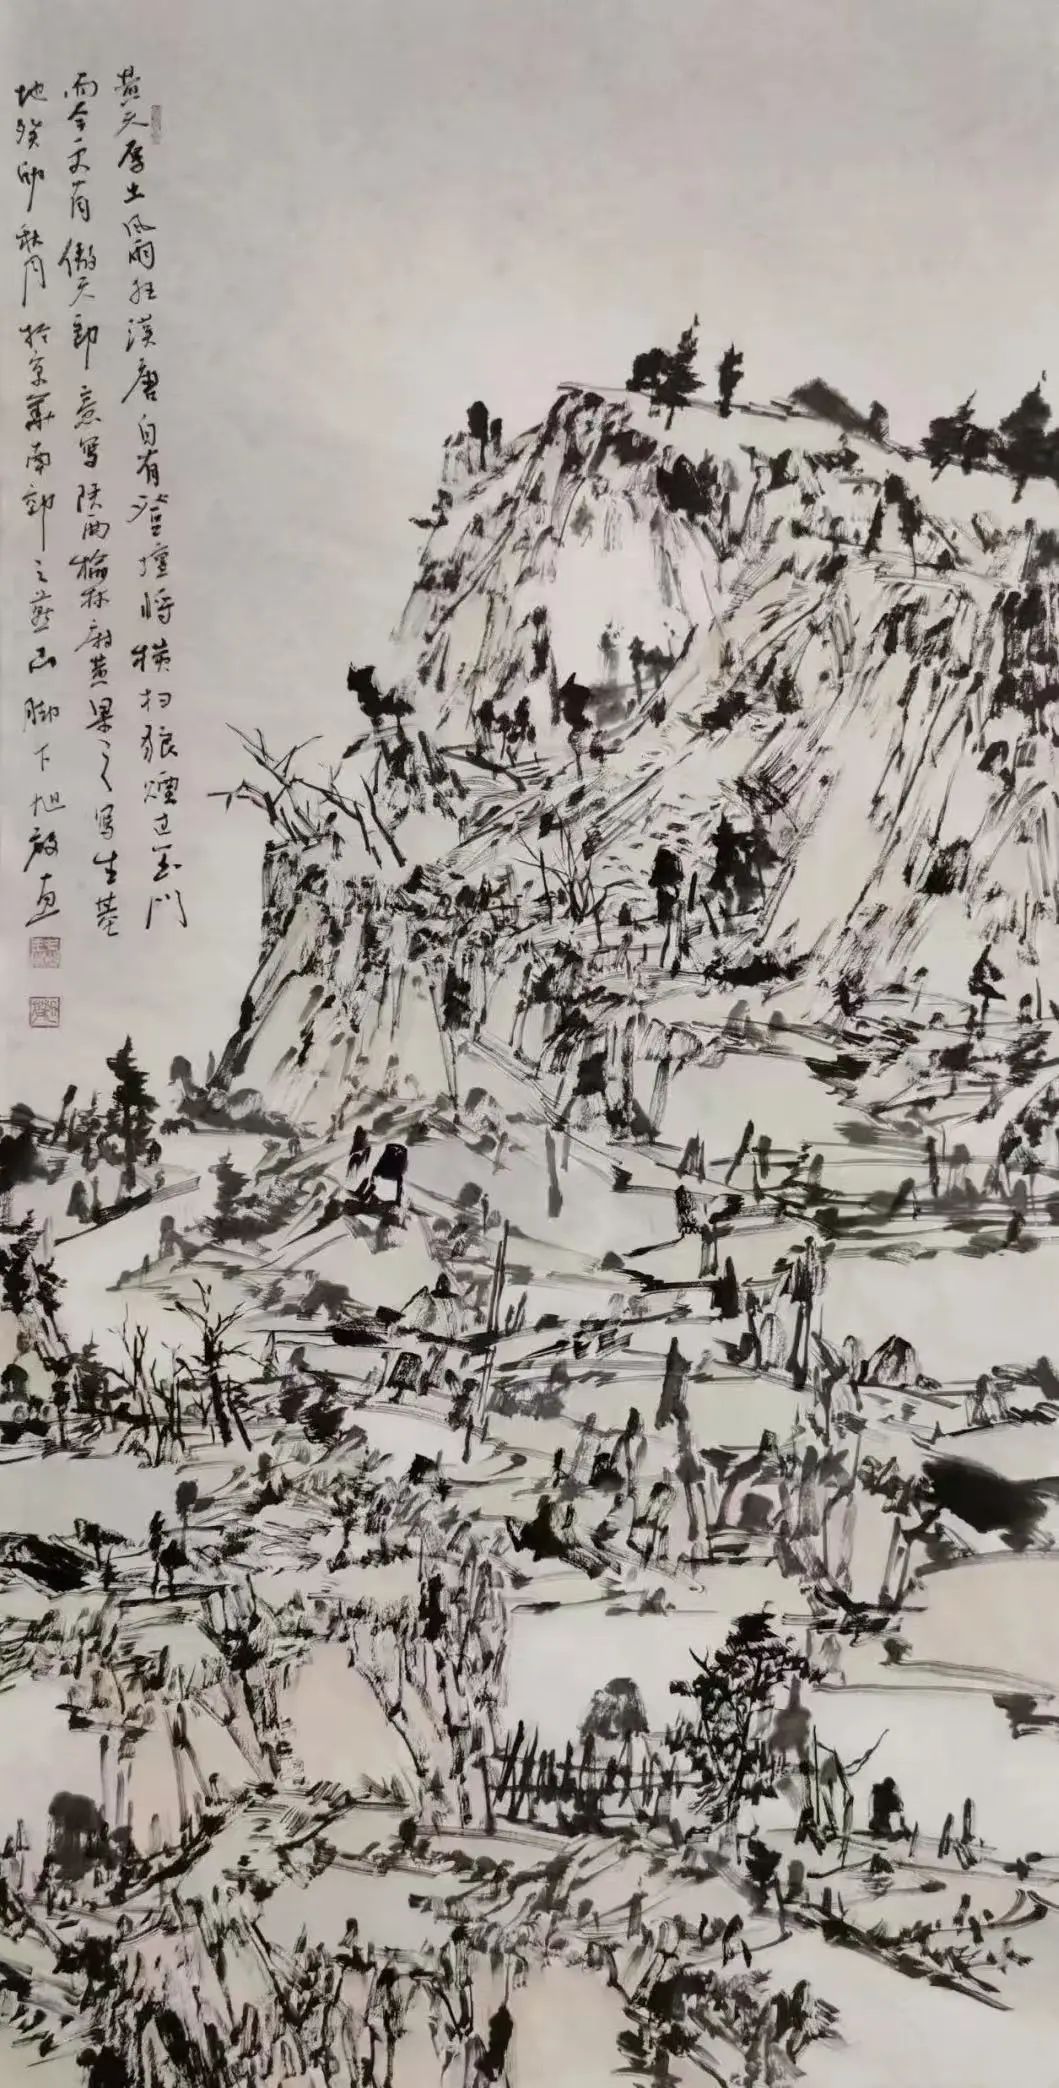 黄天厚土风雨狂汉唐自有登坛将横扫狼烟过玉门
而今更有傲天郎意写陕西榆林府黄果之写生基
地癸卯秋月于京华南郊之燕山脚下旭毅画